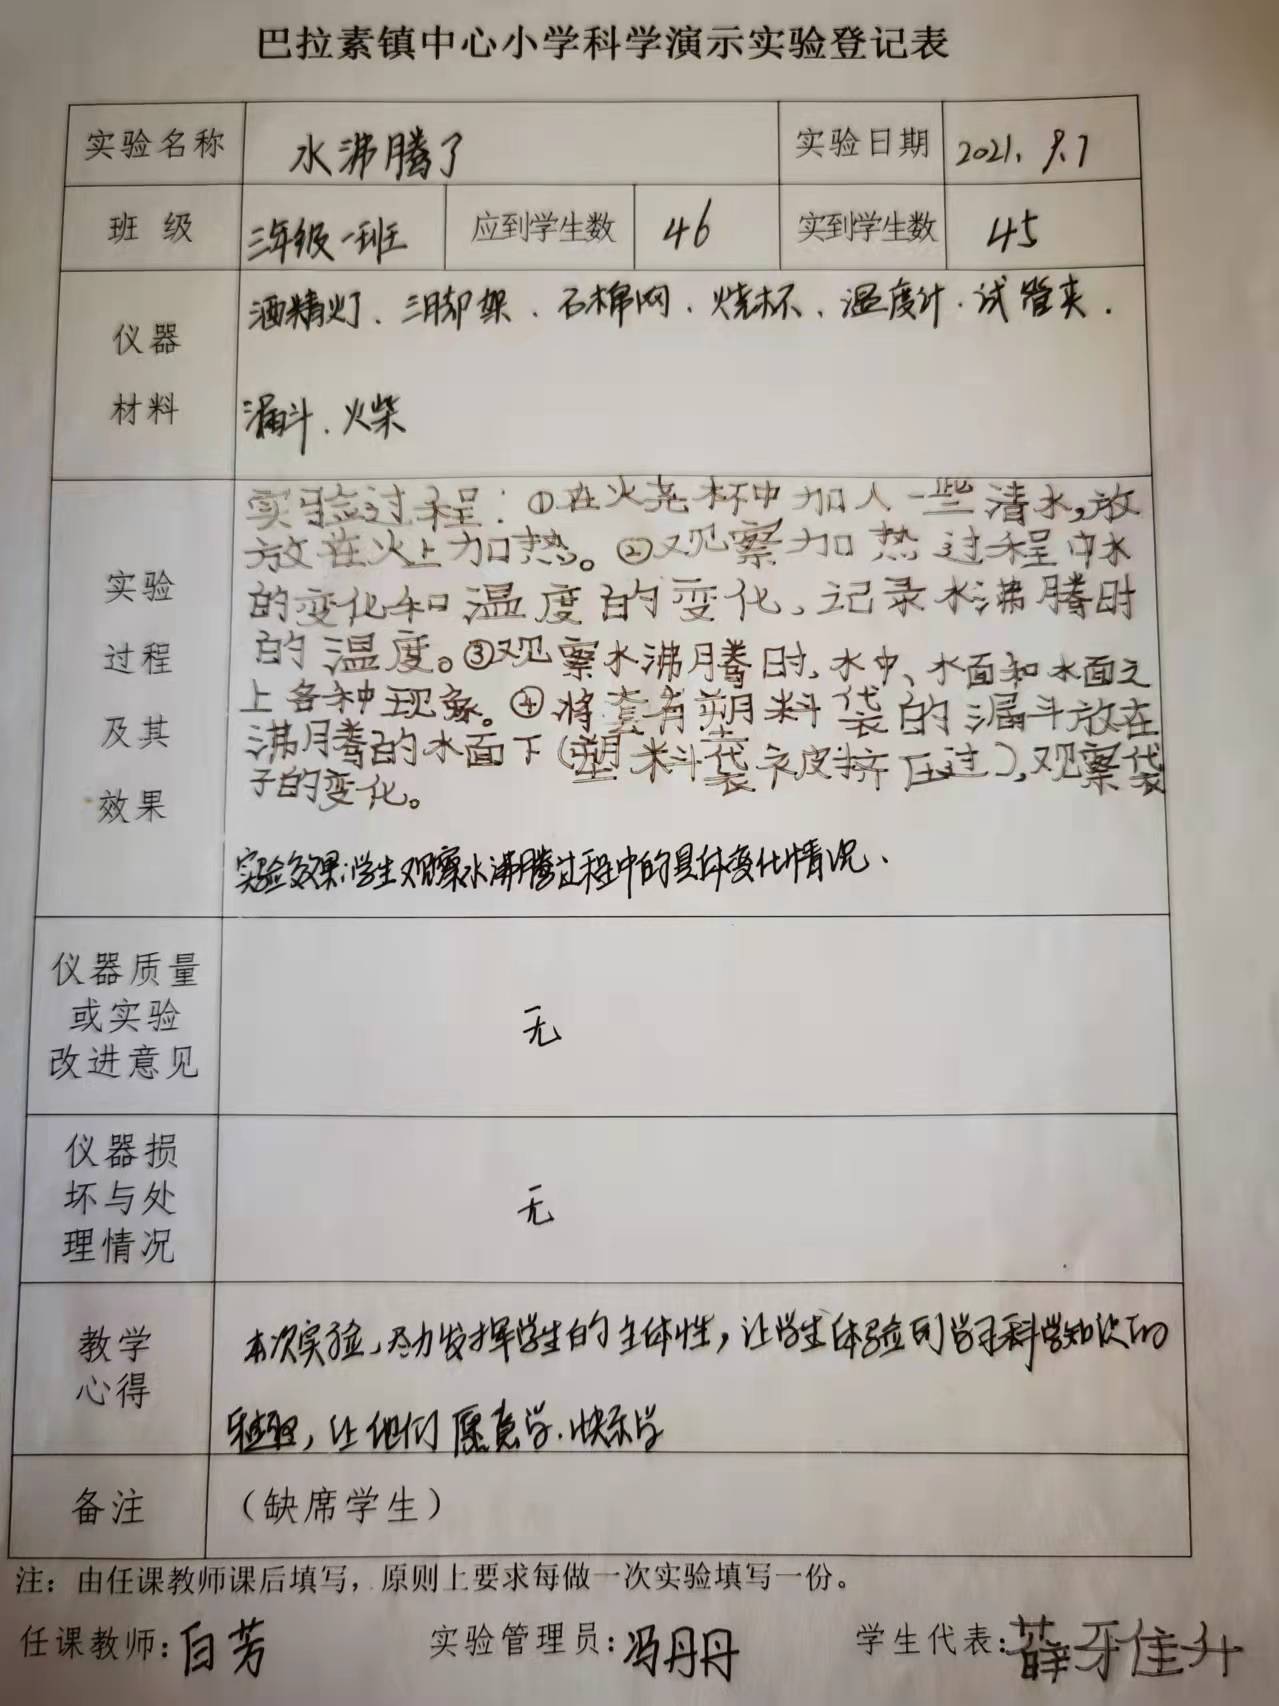 巴拉素镇中心小学科学演示实验登记表
实验名称 水沸腾了 实验日期 2021.9.7
班 级 三年级一班 应到学生数 46 实到学生数 45
仪器
材料
酒精灯、三脚架、石棉网、烧杯、温度计、试管夹.
漏斗、火柴
实验
过程
及其
效果
实验过程:①在烧杯中加入一些清水,放
放在火上加热。②观察加热过程中水
的变化和温度的变化,记录水沸腾时
的温度。③观察水沸腾时,水中、水面和水面之
上各种现象。④将套有塑料袋的漏斗放在
沸腾的水面下(塑料袋被挤压过),观察袋
子的变化。
实验效果:学生观察水沸腾过程中的具体变化情况、
仪器质量
或实验
改进意见
无
仪器损
坏与处
理情况
无
教学
心得
本次实验,尽力发挥学生的主体性,让学生体验到学习科学知识的
乐趣,让他们愿意学.快乐学
备注 (缺席学生)
注:由任课教师课后填写,原则上要求每做一次实验填写一份。
任课教师:白芳 实验管理员:冯丹丹 学生代表:薛雅升